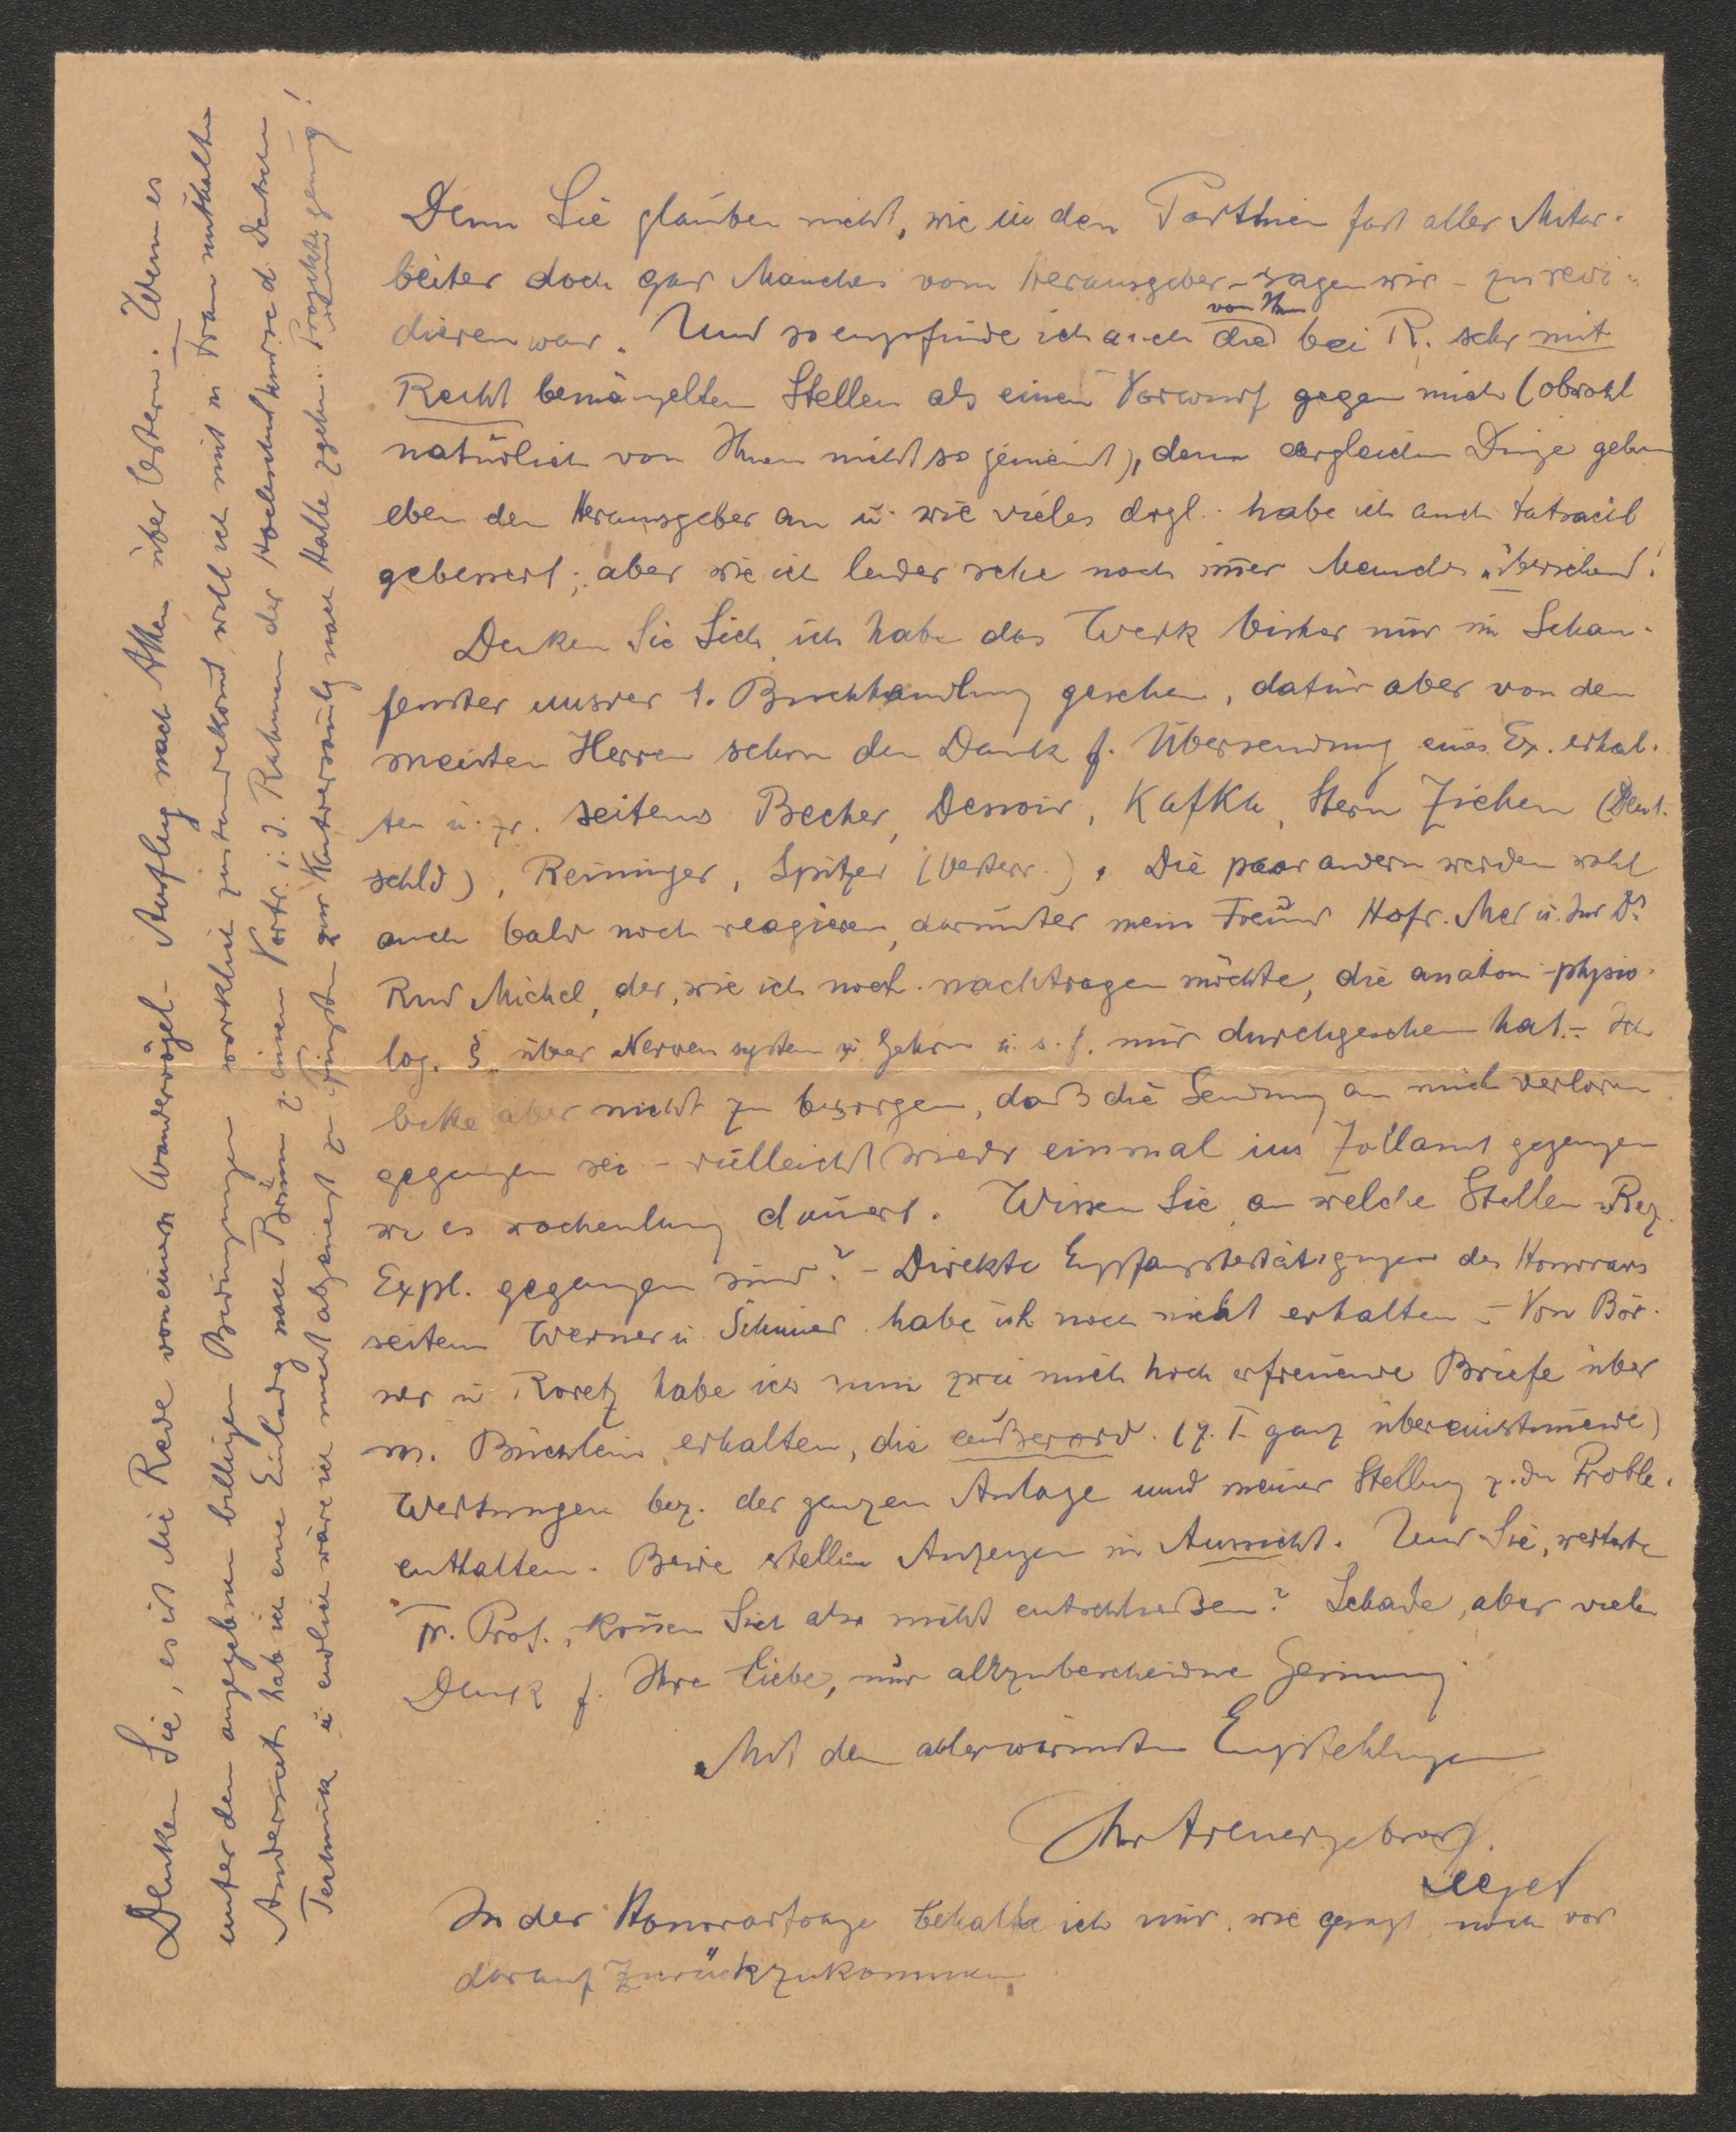 Denn Sie glauben nicht, wie in den Parthien fast aller Mitar-
beiter doch gar Manches vom Herausgeber – sagen wir – zu revi-
dieren war. Und so empfinde ich auch die von Ihnen bei R. sehr mit
Recht bemängelten Stellen als einen Vorwurf gegen mich (obwohl
natürlich von Ihnen nicht so gemeint), denn dergleichen Dinge gehen
eben den Herausgeber an u. wie vieles drgl. habe ich auch tatsächl
gebessert; aber wie ich leider sehe noch im̅er Manches übersehend!
Denken Sie Sich, ich habe das Werk bisher nur im Schau-
fenster unsrer 1. Buchhandlung gesehen, dafür aber von den
meisten Herren schon den Dank f. Übersendung eines Ex. erhal-
ten u. zw. seitens Becher, Dessoir, Kafka, Stern Ziehen (Deut-
schld), Reininger, Spitzer (Oesterr.). Die paar andern werden wohl
auch bald noch reagieren, darunter mein Freund Hofr. Med u. Jur Dr
Rud Michel, der, wie ich noch nachtragen möchte, die anatom-physio-
log. § über Nervensystem u. Gehirn u. s. f. mir durchgesehen hat. – Ich
bitte aber nicht zu besorgen, daß die Sendung an mich verloren
gegangen sei – vielleicht wieder einmal ins Zollamt gegangen
wo es wochenlang dauert. Wissen Sie, an welche Stellen Rez.
Expl. gegangen sind? – Direkte Empfangsbestätigungen des Honorars
seitens Werner u. habe ich noch nicht erhalten – Von Bör-
ner u Roretz habe ich nun zwei mich hoch erfreuende Briefe über
m. Büchlein erhalten, die außerord. (z. T. ganz übereinstim̅ende)
Wertungen bez. der ganzen Anlage und meiner Stellung z. den Proble.
enthalten. Beide stellen Anzeigen in Aussicht. Und Sie, werteste
Fr. Prof., kön̅en Sich also nicht entschließen? Schade, aber vielen
Dank f. Ihre liebe, nur allzubescheidne Gesinnung
Mit den allerwärmsten Empfehlungen
Ihr treuergebener

In der Honorarfrage behalte ich mir, wie gesagt, noch vor
darauf zurückzukommen.
Denken Sie, es ist die Rede von einem Wandervögel-Ausflug nach Athen über Ostern. Wenn es
unter den angegebenen billigen Bedingungen wirklich zustandekom̅t, will ich mit m Frau mithalten
Anderseits hab ich eine Einladg nach Brünn z. einem Vortr. i. d. Rahmen der Hochschulkurse d. Deutschen
Technik u endlich wäre ich nicht abgeneigt zu Pfingsten zur Kantversam̅lg nach Halle zgehn. Projekte genug!